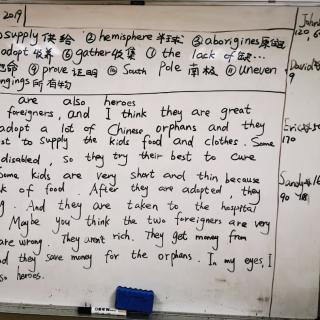 2019
supply 供给 ② hemisphere 半球 ③ aborigines
adopt 收养 ⑥ gather 收集 ① the lack of 缺...
⑨ prove 证明 ⑩ South Pole 南极 ⑪ uneven
ngings 所有物
are also heroes
foreigners, and I think they are great
adopt a lot of Chinese orphans and they
est to supply the kids food and clothes. Some
disabled, so they try their best to cure
Some kids are very short and thin because
k of food. After they are adopted, they
g. And they are taken to the hospital
Maybe you think the two foreigners are very
are wrong. They aren't rich. They get money from
nd they save money for the orphans. In my eyes, I
so heroes.
John
120, 6
David
9
Eric
170
Sandy
90